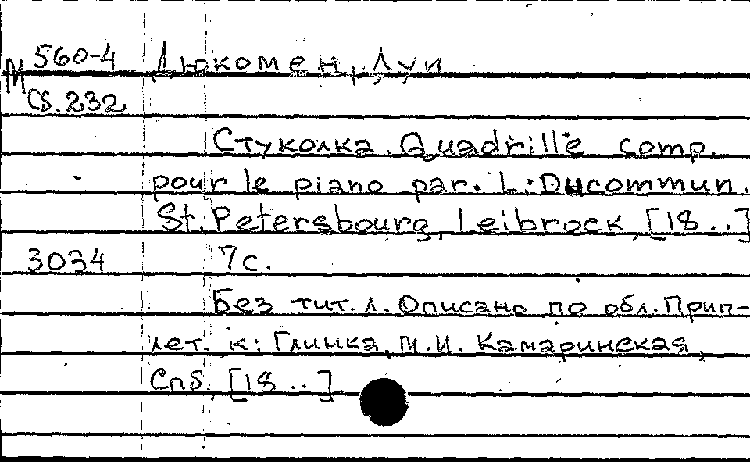 М 560-4 Дюкомен, Луи
Сб. 232
Стуколка. Quadrille comp.
pour le piano par. L. Ducommun.
St. Petersbourg, Leibrock, [18 ..]
3034 7 с.
Без тит. л. Описано по обл. Прип-
лет. к: Глинка, М.И. Камаринская,
Спб, [18 ..]